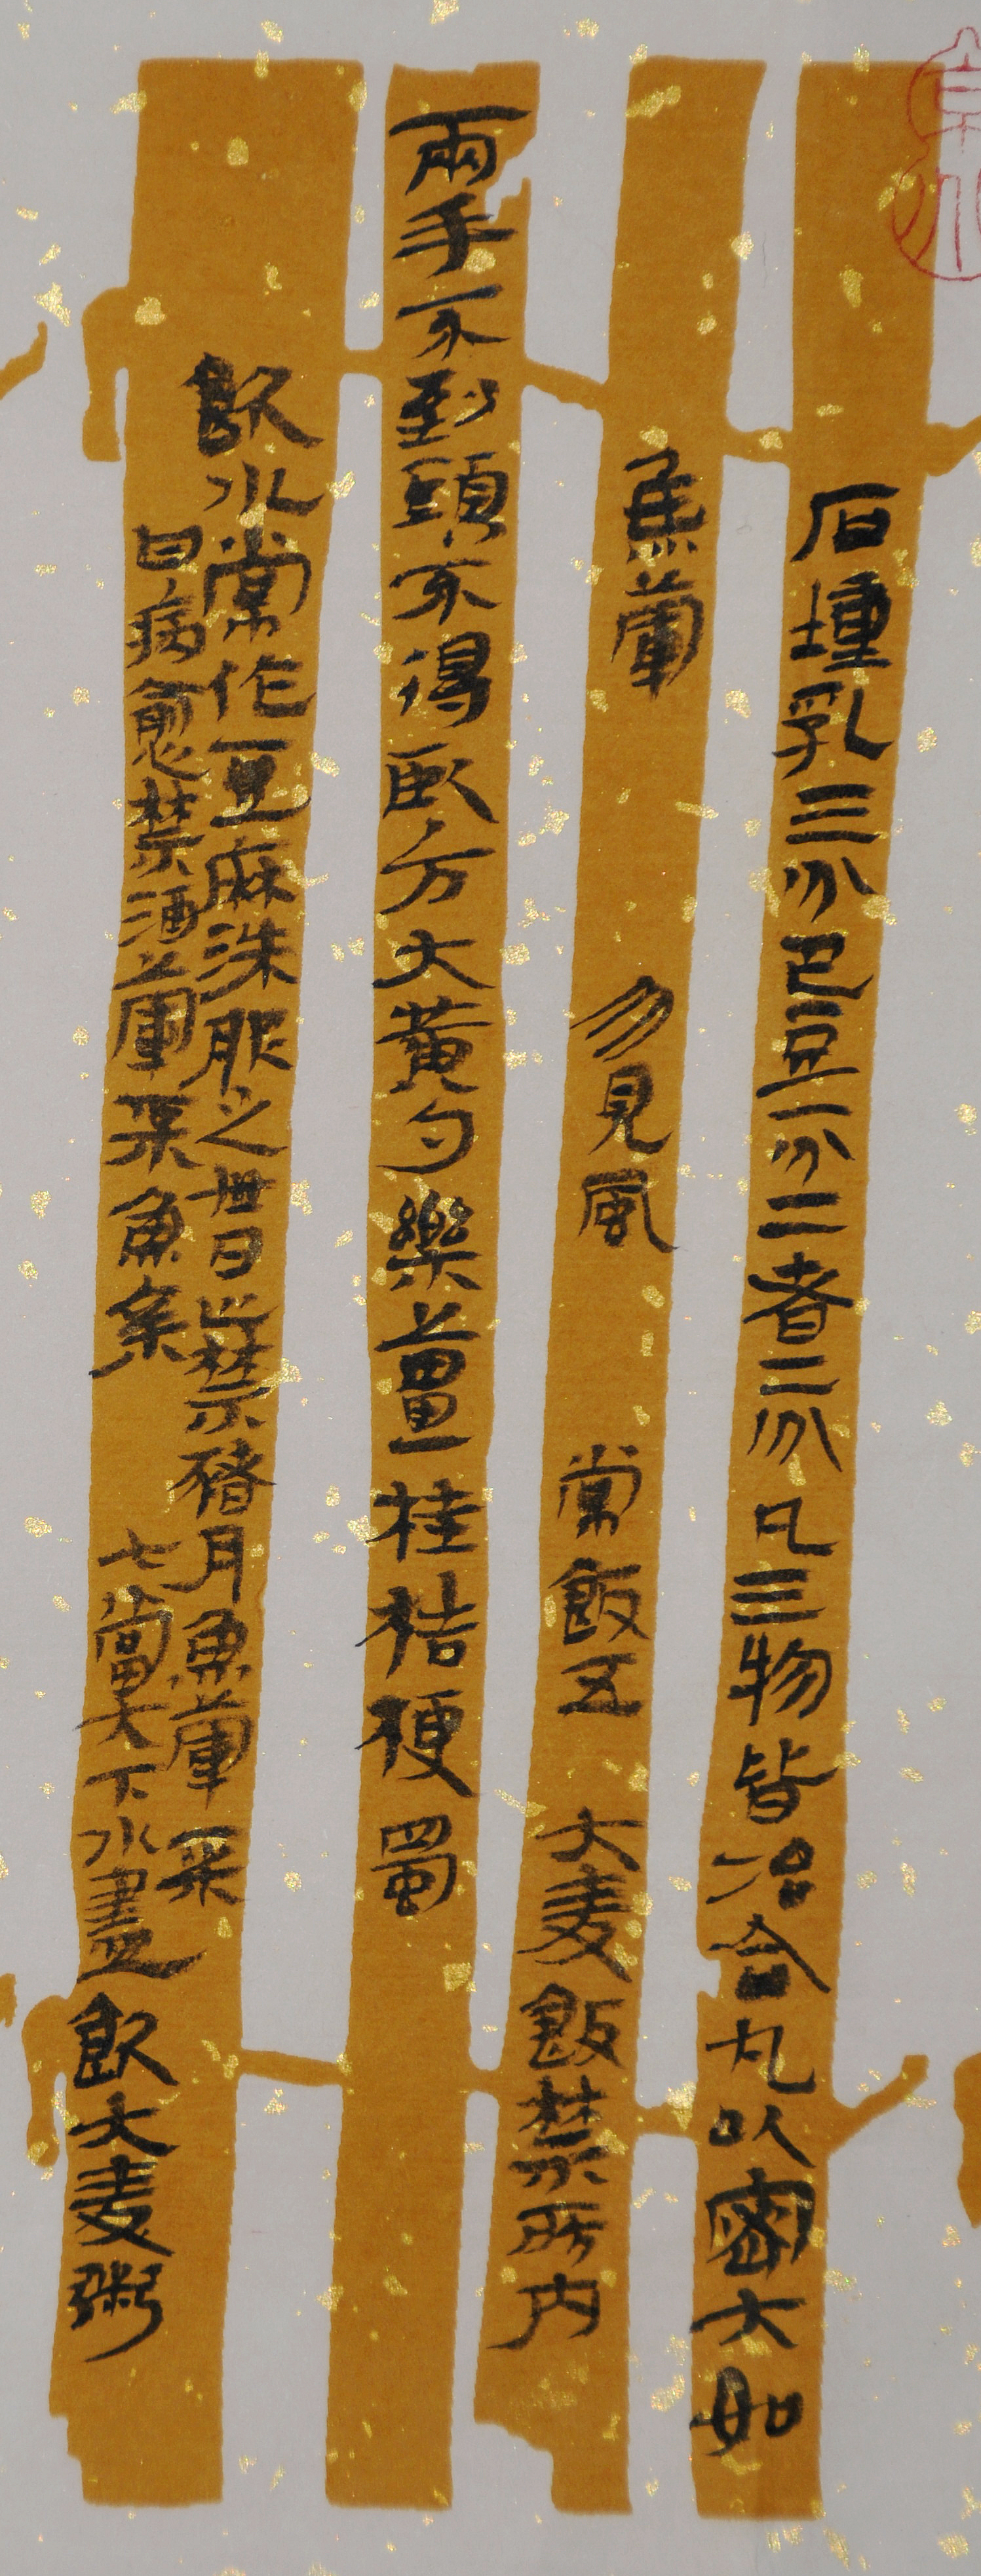 石瘇乳三分巴豆一分二者二分凡三物皆冶合丸以密大如
魚葷 勿見風 常飯五 大麦飯禁所內
兩手不到頭不得臥方大黃勺樂薑桂桔梗蜀
飲水常作豆麻洙服之廿日止禁豬月魚葷采
日病愈禁酒葷采魚 七當大下水盡飲大麦粥